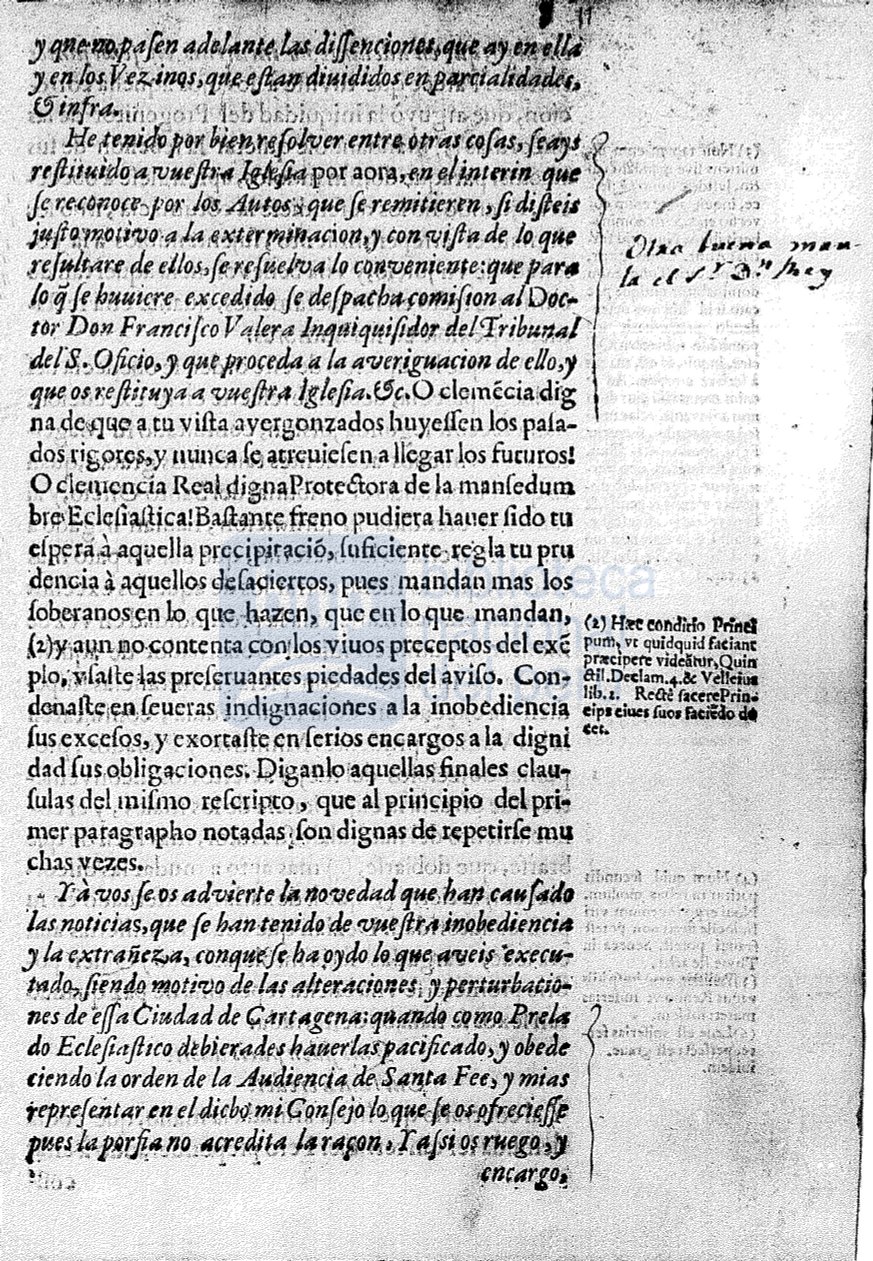 y que no pasen adelante las dissenciones, que ay en ella
y en los Vezinos, que estan diuididos en parcialidades,
& infra.
He tenido por bien resolver entre otras cosas, seays
restituido a vuestra Iglesia por aora, en el interin que
se reconoce por los Autos, que se remitieren, si disteis
justo motivo a la exterminacion, y con vista de lo que
resultare de ellos, se resuelva lo conveniente: que para
lo q̃ se huuiere excedido se despacha comision al Doc-
tor Don Francisco Valera Inquiquisidor del Tribunal
del S. Oficio, y que proceda a la averiguacion de ello, y
que os restituya a vuestra Iglesia. &c. O clemẽcia dig
na de que a tu vista avergonzados huyessen los pasa-
dos rigores, y nunca se atreuiesen a llegar los futuros!
O clemencia Real digna Protectora de la mansedum
bre Eclesiastica! Bastante freno pudiera hauer sido tu
espera à aquella precipitació, suficiente regla tu pru
dencia à aquellos desaciertos, pues mandan mas los
soberanos en lo que hazen, que en lo que mandan,
(2) y aun no contenta con los viuos preceptos del exẽ
plo, vsaste las preseruantes piedades del aviso. Con-
denaste en seueras indignaciones a la inobediencia
sus excesos, y exortaste en serios encargos a la digni
dad sus obligaciones. Diganlo aquellas finales clau-
sulas del mismo rescripto, que al principio del pri-
mer paragrapho notadas, son dignas de repetirse mu
chas vezes.
Y à vos se os advierte la novedad que han causado
las noticias, que se han tenido de vuestra inobediencia
y la extrañeza, conque se ha oydo lo que aveis execu-
tado, siendo motivo de las alteraciones, y perturbacio-
nes de essa Ciudad de Cartagena: quando como Prela
do Eclesiastico debierades hauerlas pacificado, y obede
ciendo la orden de la Audiencia de Santa Fee, y mias
representar en el dicho mi Consejo lo que se os ofreciesse
pues la porfia no acredita la raçon, Y assi os ruego, y
encargo,
Otra buena man-
la el Sr. Dn Rey
(2) Hæc conditio Princi
pum, vt quidquid faciant
præcipere videãtur, Quin
ctil. Declam. 4. & Velleius
lib. 2. Rectè facere Prin-
ceips ciues suos faciẽdo do
cet.
biblioteca